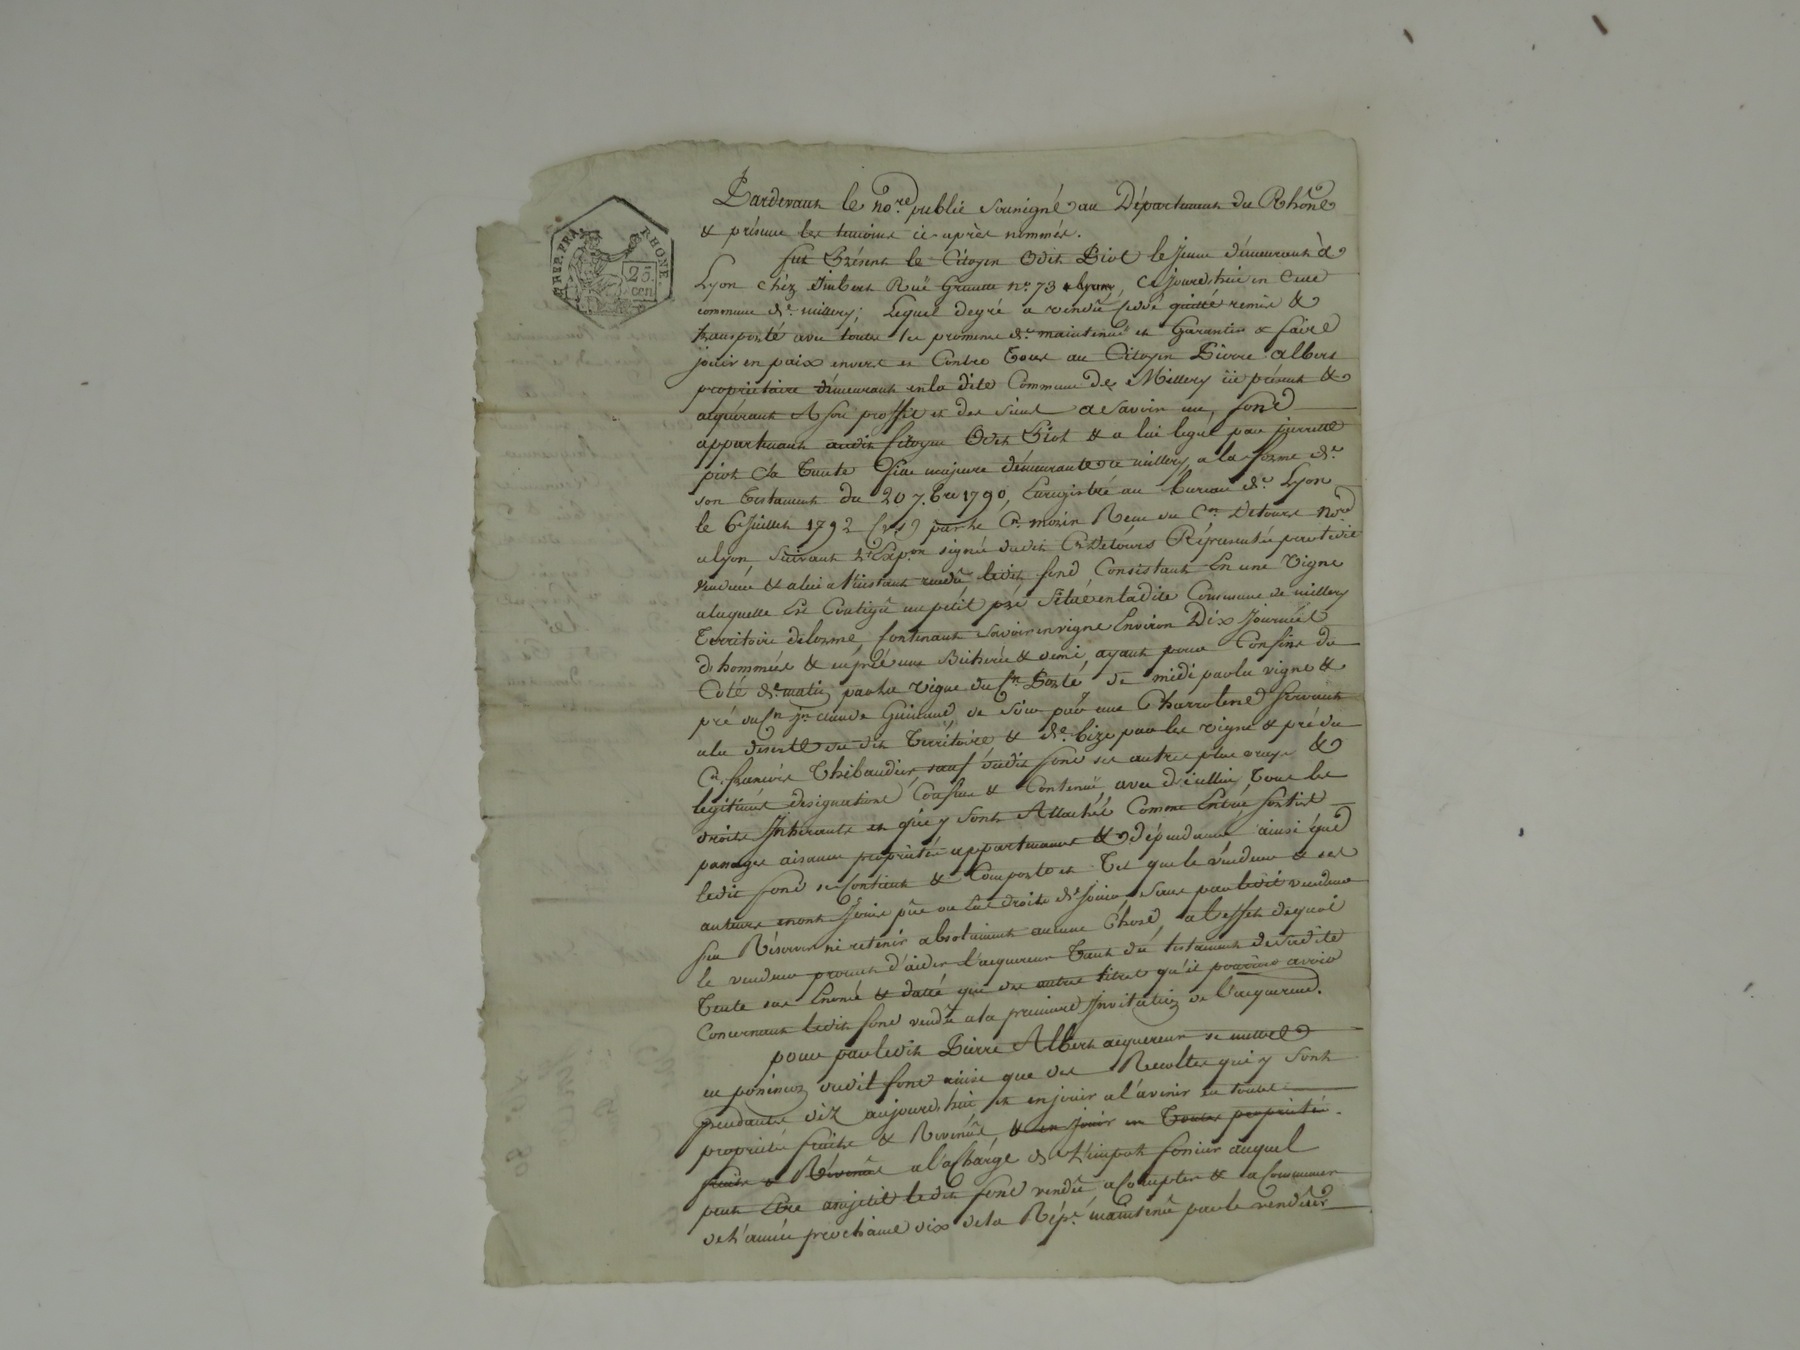 RHEP. FRA.
RHONE.
25
cen
Pardevant le no.re public soussigné au Département du Rhône
& présence les temoins ci-après nommés.
fut Présent le Citoyen Odet Piot le Jeune démeurant à
Lyon chéz Imbert Ruë Grenette n.o 73 a Lyon, Ce jourd'huie en Cette
commune de. millery; Lequel degré a vendu Cedé quitté remis &
transporté avec toutes les promesse de. maintenuë et Garantie & faire
jouir en paix envers et Contre Tous au Citoyen Pierre Albert
propriétaire démeurant en la dite Commune de Millery ici présent &
aquérant A son proffit et des siens a Savoir un fond
appartenant audit Citoyen Odet Piot & a lui legué par pierrette
piot Sa Tante fille majeure démeurante a millery, a la forme de.
son Testament du 20 7.bre 1790, Enregistré au bureau de. Lyon
le 6 Juillet 1792 par le C.n mozin Recu du C.en Detours No.re
a Lyon Suivant L'Exp.on signée dudit C.n Detours Répresentée par ledit
vendeur & a lui a l'instant rendu ledit fond Consistant En une Vigne
a laquelle Est Contiguë un petit pré Situé en ladite Commune de millery
Territoire delorme, Contenant savoir en vigne Environ Dix Journées
d'hommées & en pré une Bicherée & demi, ayant pour Confins du
Coté de. matin par la vigne du C.n Ponté, de midi par la vigne &
pré du C.n J.n claude Guinand, de Soir par une Charroterie servant
a la deserte du dit Térritoire & de. bize par les vigne & pré du
C.n françois Thibaudier, sauf dudit fond ses autres plus vrays &
légitimes designations, Confins & Contenuë, avec d'icelluy Tous les
droits Inhérants et qui y sont Attachés Comme Entrée Sortie
passages aisances proprietés appartenances & dépendances ainsi que
ledit fond se Contient & Comporte et Tel que le véndeur & ses
auteurs en ont Jouis pû ou dû droits de. jouir, Sans par ledit vendeur
s'en Réserver ni retenir absolument aucune Chose, a l'effet dequoi
le vendeur promet d'aider l'acquereur Tant du testament de Sadite
Tante sus Enoncé & datté que des autres titres qu'il pourroit avoir
Concernant ledit fond vendu a la premiere Invitation de l'acquereur.
pour par ledit Pierre Albert acquereur se mettre
en possession dudit fond ainsi que des Recoltes qui y sont
pendantes déz aujourd'hui et en jouir a l'avenir en toutes
propriété fruits & Révenûs, & en jouir en Toutes propriétés
fruits & Révenûs a la Charge de L'impot foncier auquel
peut Etre assujetit ledit fond vendu a Compter & a Commencer
de L'année prochaine dix de la Rép.e maintenû par le vendeur